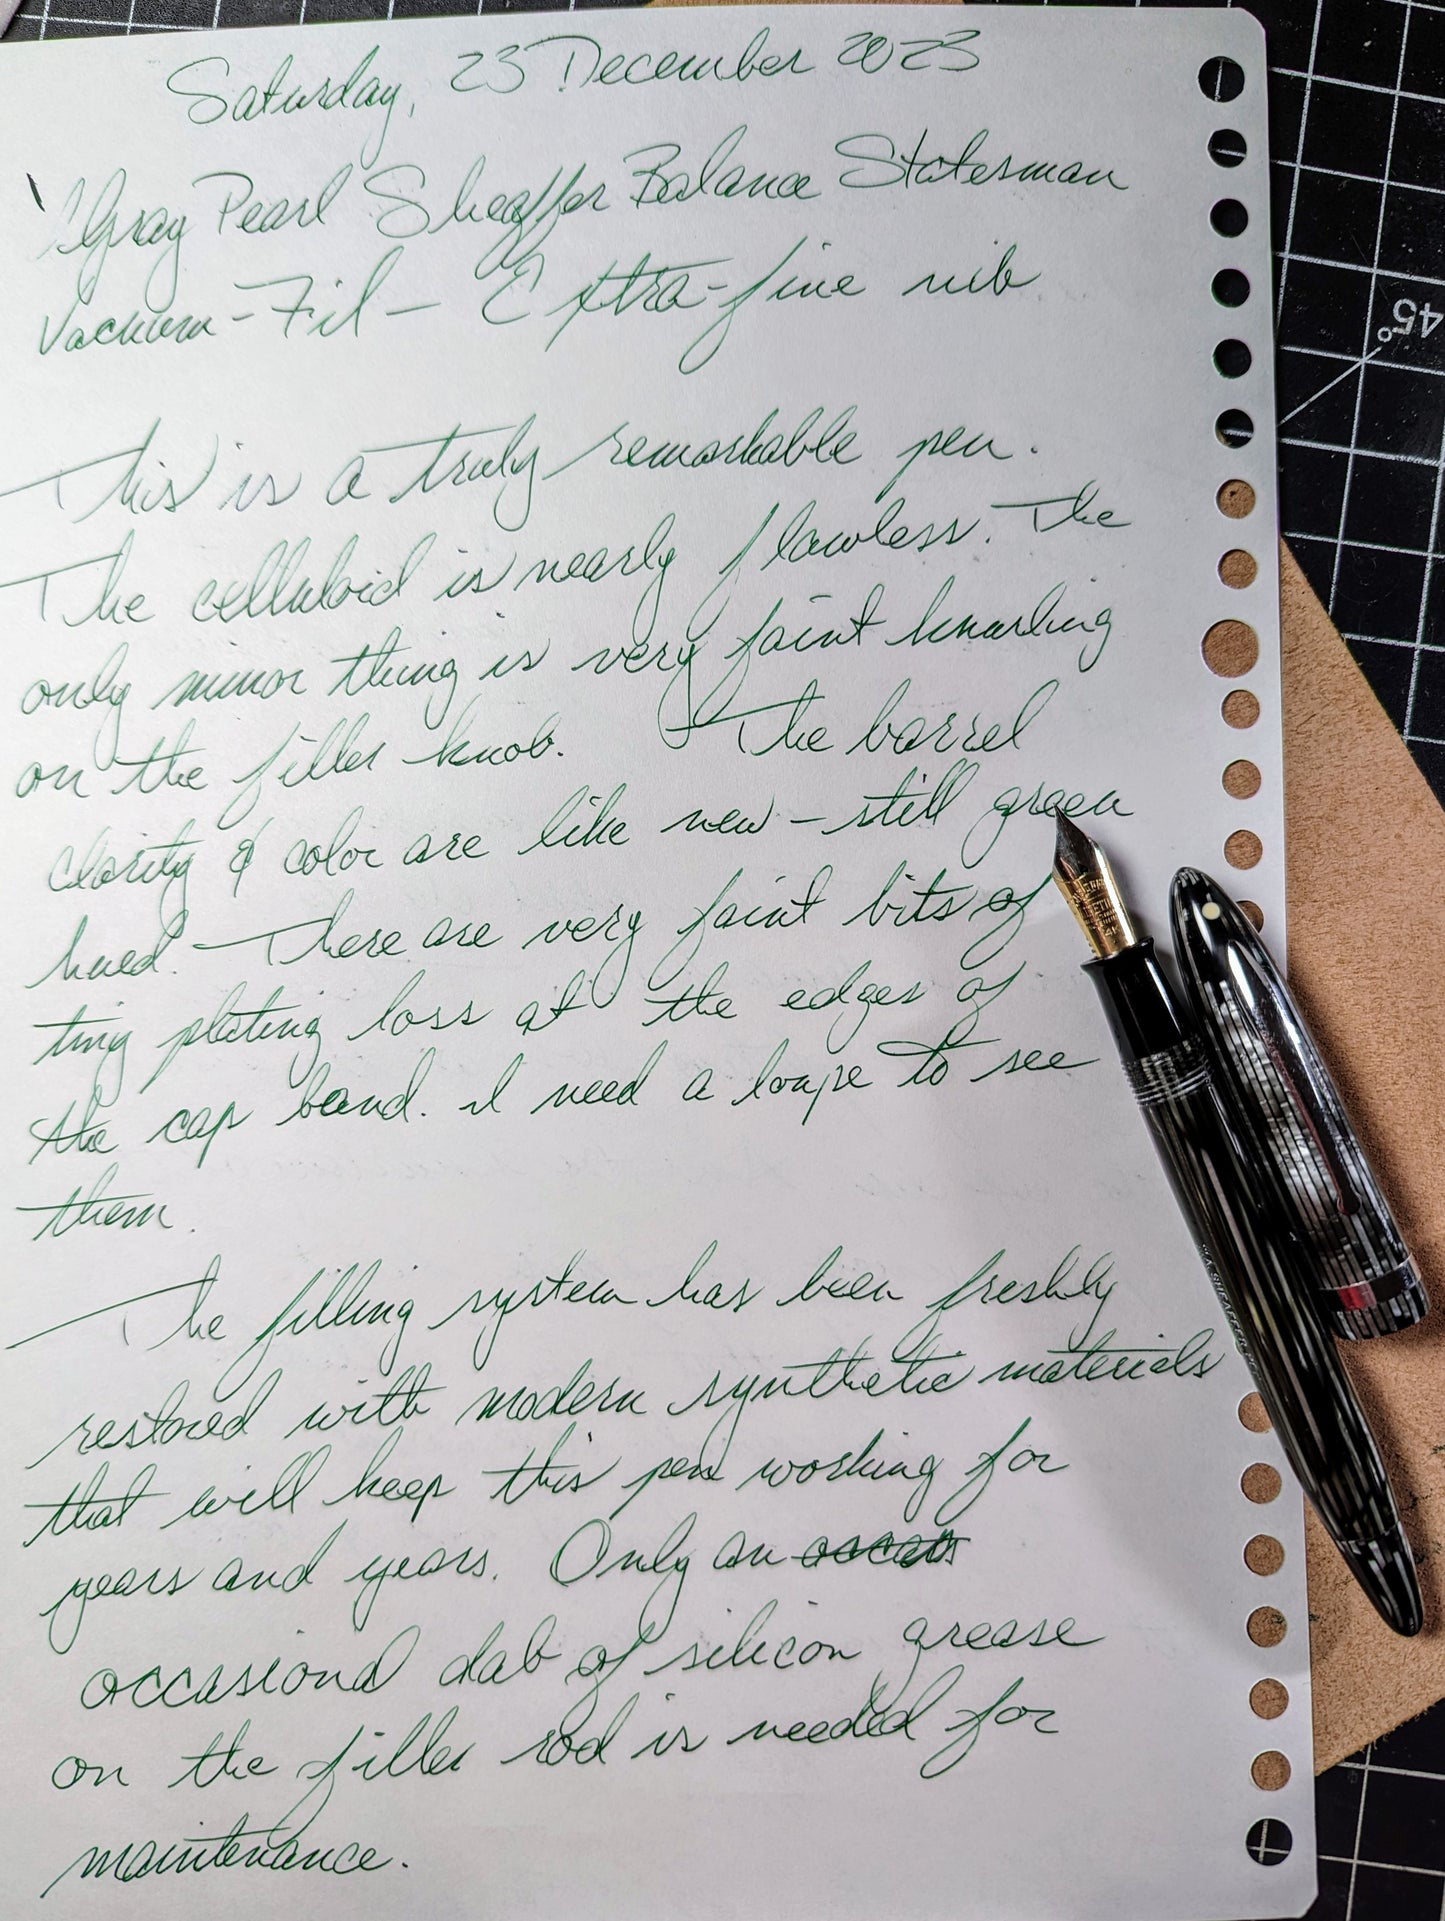 Saturday, 23 December 2023
Gray Pearl Sheaffer Balance Statesman
Vacuum-Fil - Extra-fine nib
This is a truly remarkable pen.
The celluloid is nearly flawless. The
only minor thing is very faint knurling
on the filler knob. The barrel
clarity & color are like new - still green
hued. There are very faint bits of
tiny plating loss at the edges of
the cap band. I need a loupe to see
them.
The filling system has been freshly
restored with modern synthetic materials
that will keep this pen working for
years and years. Only an
occasional dab of silicon grease
on the filler rod is needed for
maintenance.
45°
14K
W.A. SHEAFFER